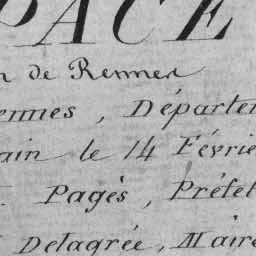 PACE
n de Rennes
ennes, Départem
ain le 14 Févrie
Pagès, Préfet
Delagrée, Maire